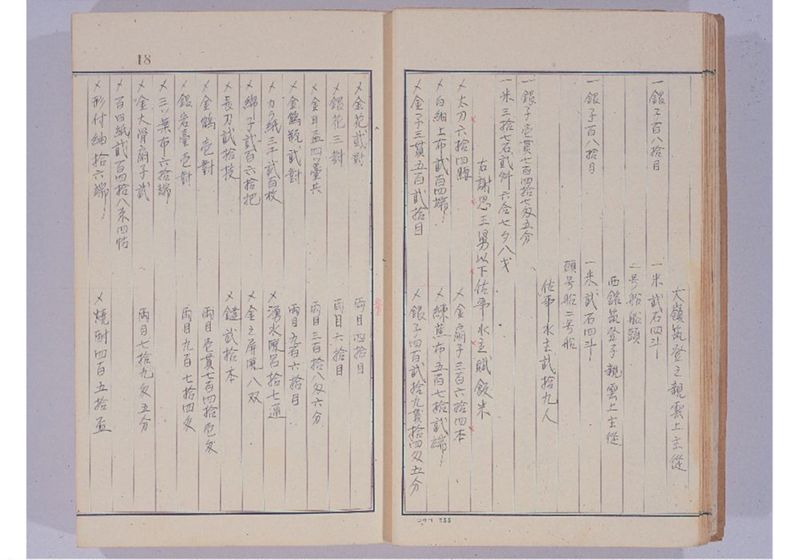 大嶺筑登之親雲上主從
一銀子百八拾目
一米弐石四斗
二号船船頭
西銀筑登之親雲上主從
一銀子百八拾目
一米弐石四斗
頭号船二号船
佐事水主弐拾九人
一銀子壱貫七百四拾七匁五分
一米三拾七石弐斗六合七夕八才
右謝恩王舅以下佐事水主賦飯米
〆太刀六拾四腰
〆金扇子三百六拾四本
〆白細上布弐百四端
〆練蕉布五百七拾弐端
〆金子三貫五百弐拾目
〆銀子四百弐拾九貫拾四匁五分
18
〆金花弐對
両目四拾目
〆銀花三對
両目六拾目
〆金目盃四ツ臺共
両目三百拾八匁六分
〆金鶴瓶弐對
両目九百六拾目
〆力ノ紙三千弐百枚
〆湧水風呂拾七通
〆綿子弐百六拾把
〆金之屏風八双
〆長刀弐拾枝
〆鑓弐拾本
〆金鶴壱對
両目壱貫七百四拾壱匁
〆銀岩臺壱對
両目九百七拾四匁
〆三ツ葉布六拾端
〆金大骨扇子弐
両目七拾九匁五分
〆百田紙弐百四拾八束四帖
〆形付紬拾六端
〆焼酎四百五拾盃